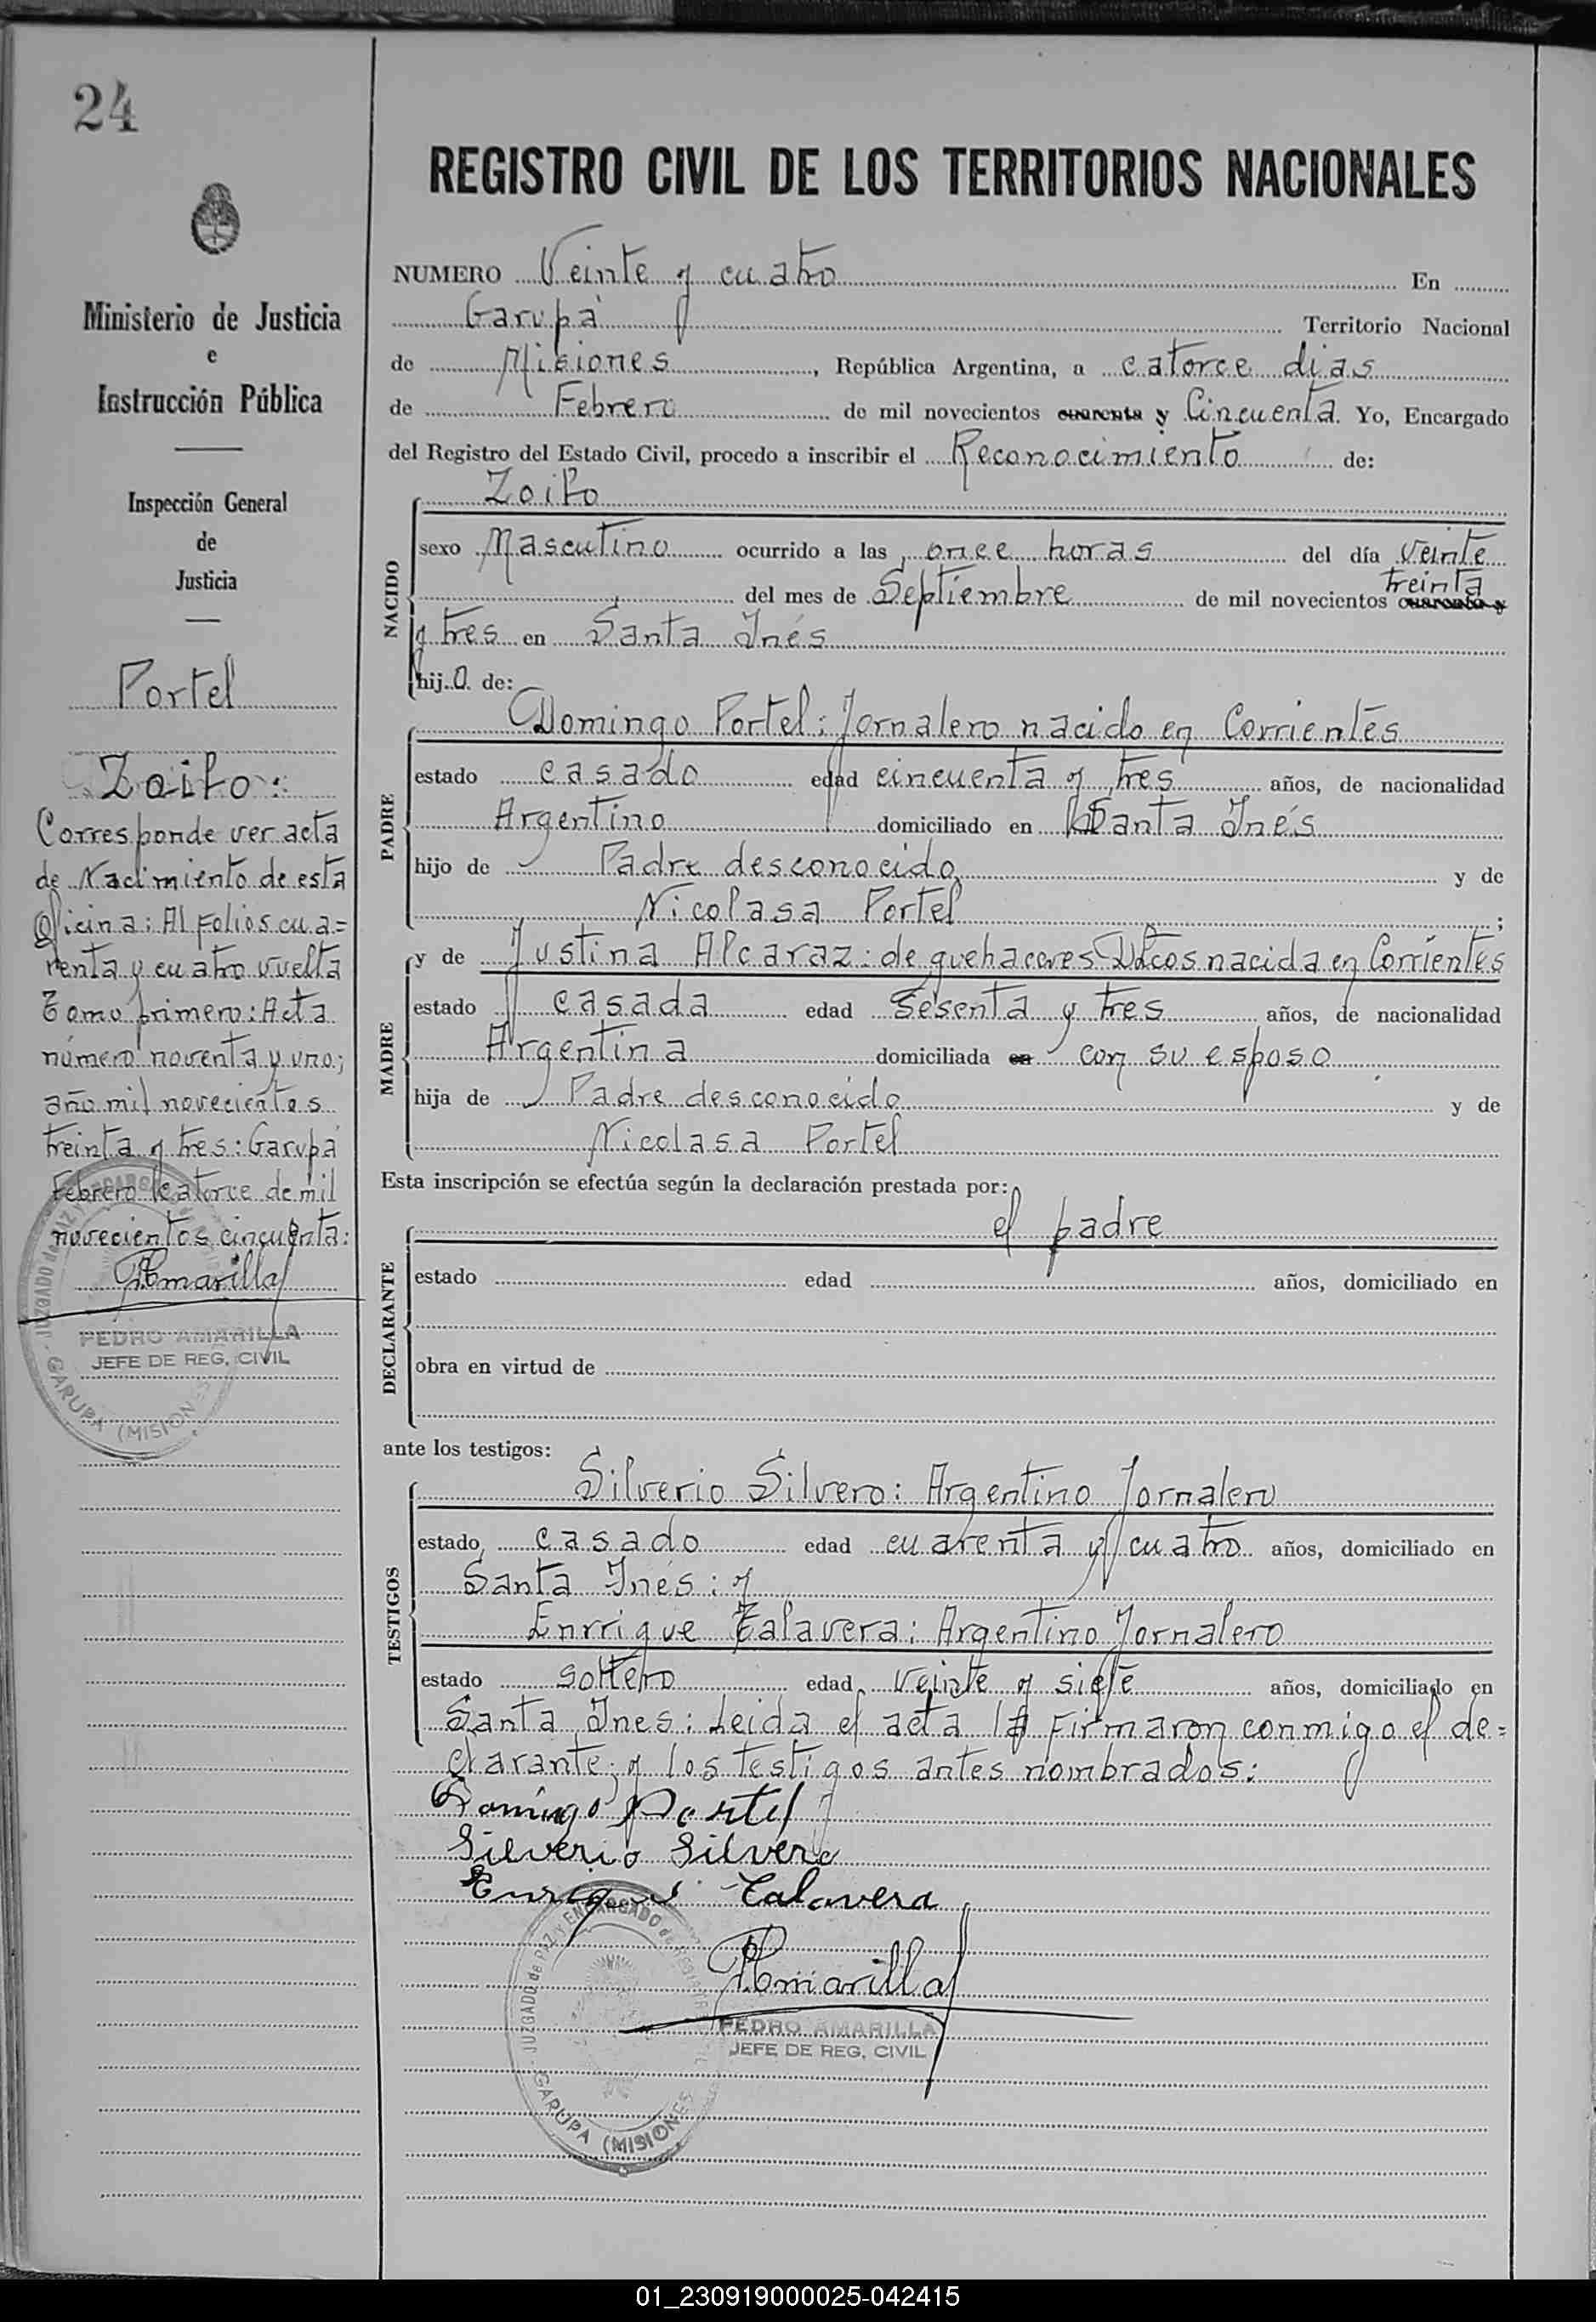 24
Ministerio de Justicia
e
Instrucción Pública
Inspección General
de
Justicia
Portel
Zoilo:
Corresponde ver acta
de Nacimiento de esta
Oficina: Al folios cua=
renta y cuatro vuelta
Tomo primero: Acta
número noventa y uno;
año mil novecientos
treinta y tres: Garupá
Febrero catorce de mil
novecientos cincuenta:
PAmarilla
PEDRO AMARILLA
JEFE DE REG. CIVIL
GARUPA (MISIONES
REGISTRO CIVIL DE LOS TERRITORIOS NACIONALES
NUMERO Veinte y cuatro En
Garupá Territorio Nacional
de Misiones, República Argentina, a catorce dias
de Febrero de mil novecientos cuarenta y Cincuenta. Yo, Encargado
del Registro del Estado Civil, procedo a inscribir el Reconocimiento de:
Zoilo
NACIDO
sexo Masculino ocurrido a las once horas del día veinte
del mes de Septiembre de mil novecientos cuarenta y treinta
y tres en Santa Inés
hijo de:
Domingo Portel: Jornalero nacido en Corrientes
PADRE
estado casado edad cincuenta y tres años, de nacionalidad
Argentino domiciliado en Santa Inés
hijo de Padre desconocido y de
Nicolasa Portel;
MADRE
y de Justina Alcaraz: de quehaceres nacida en Corrientes
estado casada edad sesenta y tres años, de nacionalidad
Argentina domiciliada en con su esposo
hija de Padre desconocido y de
Nicolasa Portel
Esta inscripción se efectúa según la declaración prestada por:
el padre
DECLARANTE
estado edad años, domiciliado en
obra en virtud de
ante los testigos:
TESTIGOS
Silverio Silvero: Argentino Jornalero
estado casado edad cuarenta y cuatro años, domiciliado en
Santa Inés: y
Enrrique Talavera: Argentino Jornalero
estado soltero edad veinte y siete años, domiciliado en
Santa Ines: Leida el acta la Firmaron conmigo el de=
clarante; y los testigos antes nombrados:
Domingo Portel
Silverio Silvero
Enrique Talavera
PAmarilla
PEDRO AMARILLA
JEFE DE REG. CIVIL
JUZGADO de PAZ Y ENCARGADO de
GARUPA (MISIONES
01_230919000025-042415